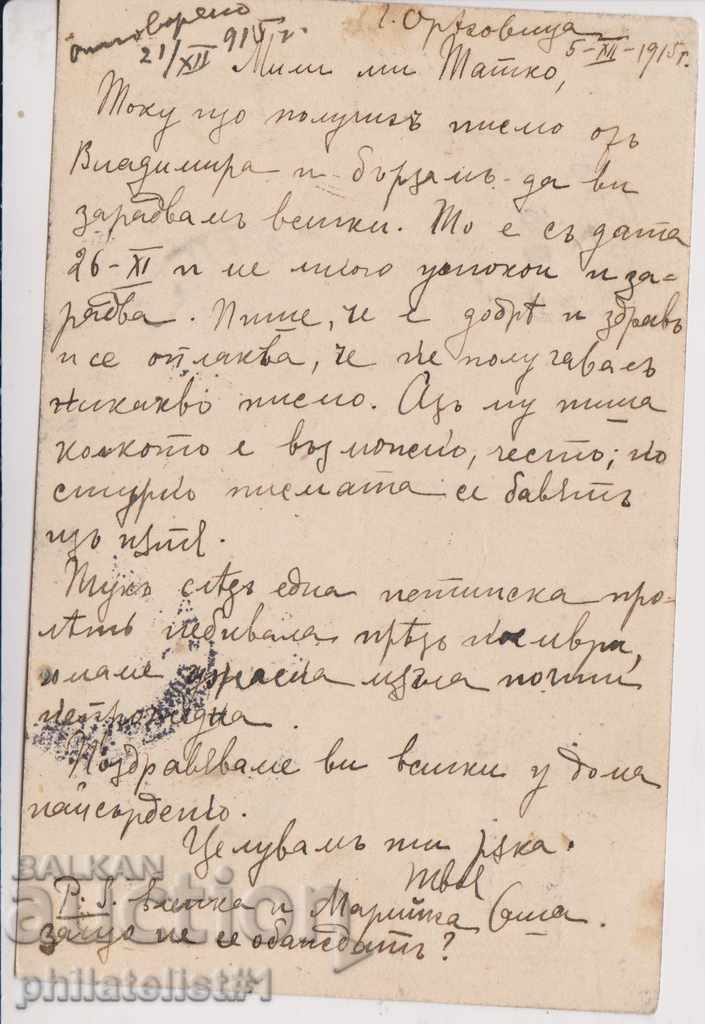 отговорено
21/XII 915 г.
г. Орѣховица
5-XII-1915 г.
Мили ми Татко,
Току що получихъ писмо отъ
Владимира и бързамъ да ви
зарадвамъ всички. То е съ дата
26-XI и ме много успокои и за-
радва. Пише, че е добрѣ и здравъ
и се оплаква, че не получавалъ
никакво писмо. Азъ му пиша
колкото е възможно, често; но
сигурно писмата се бавятъ
изъ пѫтя.
Тукъ слѣдъ една истинска про-
лѣть небивала прѣзъ ноември,
имаме ужасна мъгла почти
непрогледна.
Поздравяваме ви всички у дома
найсърдечно.
Целувамъ ти рѫка.
твоя
Саша.
P. S. и Марийка
защо не се обаждатъ?
BALKAN
auction
philatelist#1